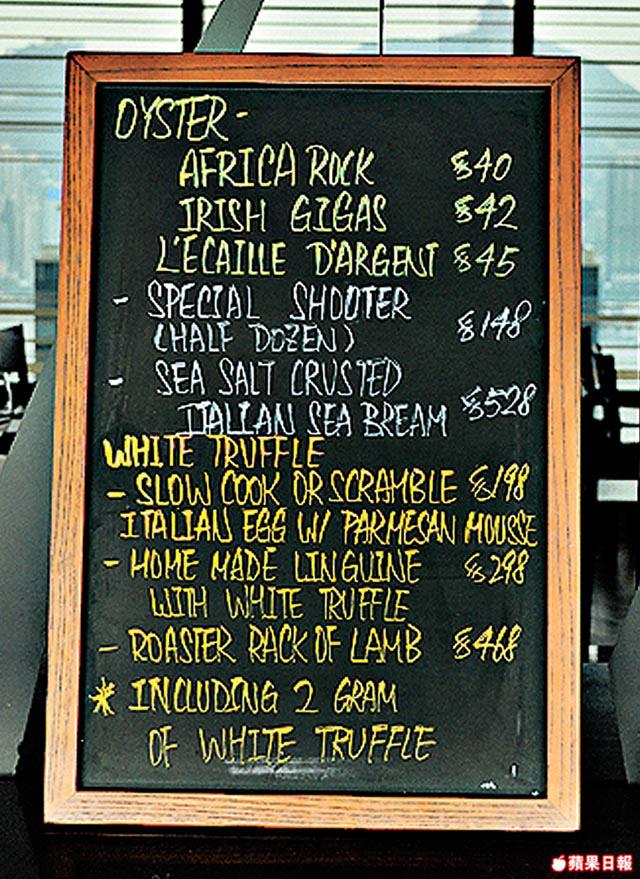 OYSTER -
AFRICA ROCK $40
IRISH GIGAS $42
L'ECAILLE D'ARGENT $45
- SPECIAL SHOOTER
(HALF DOZEN) $148
- SEA SALT CRUSTED
ITALIAN SEA BREAM $528
WHITE TRUFFLE
- SLOW COOK OR SCRAMBLE $198
ITALIAN EGG W/ PARMESAN MOUSSE
- HOME MADE LINGUINE $298
WITH WHITE TRUFFLE
- ROASTER RACK OF LAMB $468
* INCLUDING 2 GRAM
OF WHITE TRUFFLE
蘋果日報